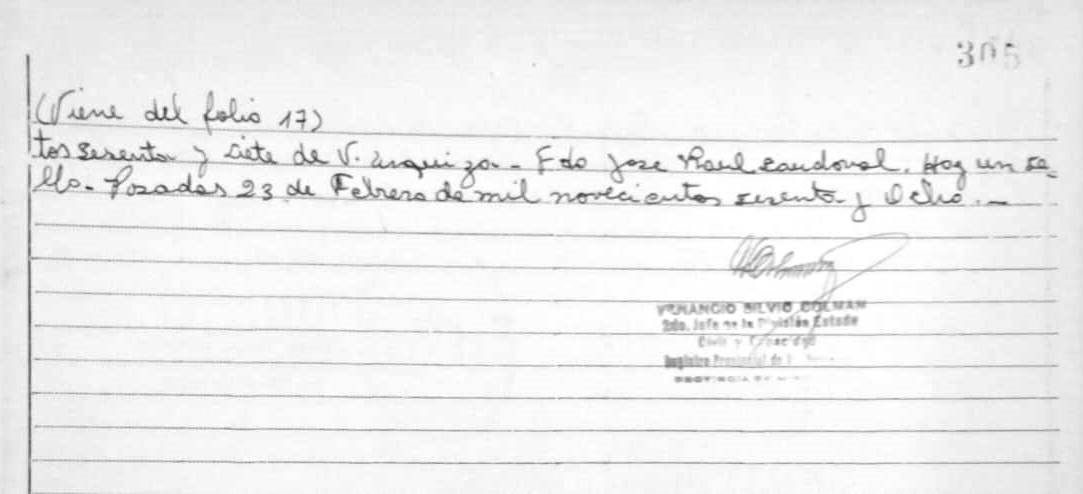 305
(Viene del folio 17)
tos sesenta y siete de V. Urquiza - Fdo Jose Raul Sandoval. Hay un se_
llo - Posadas 23 de Febrero de mil novecientos sesenta y Ocho. -
VENANCIO SILVIO COLMAN
2do. Jefe de la División Estado
Civil y Capacidad
Registro Provincial de
PROVINCIA DE